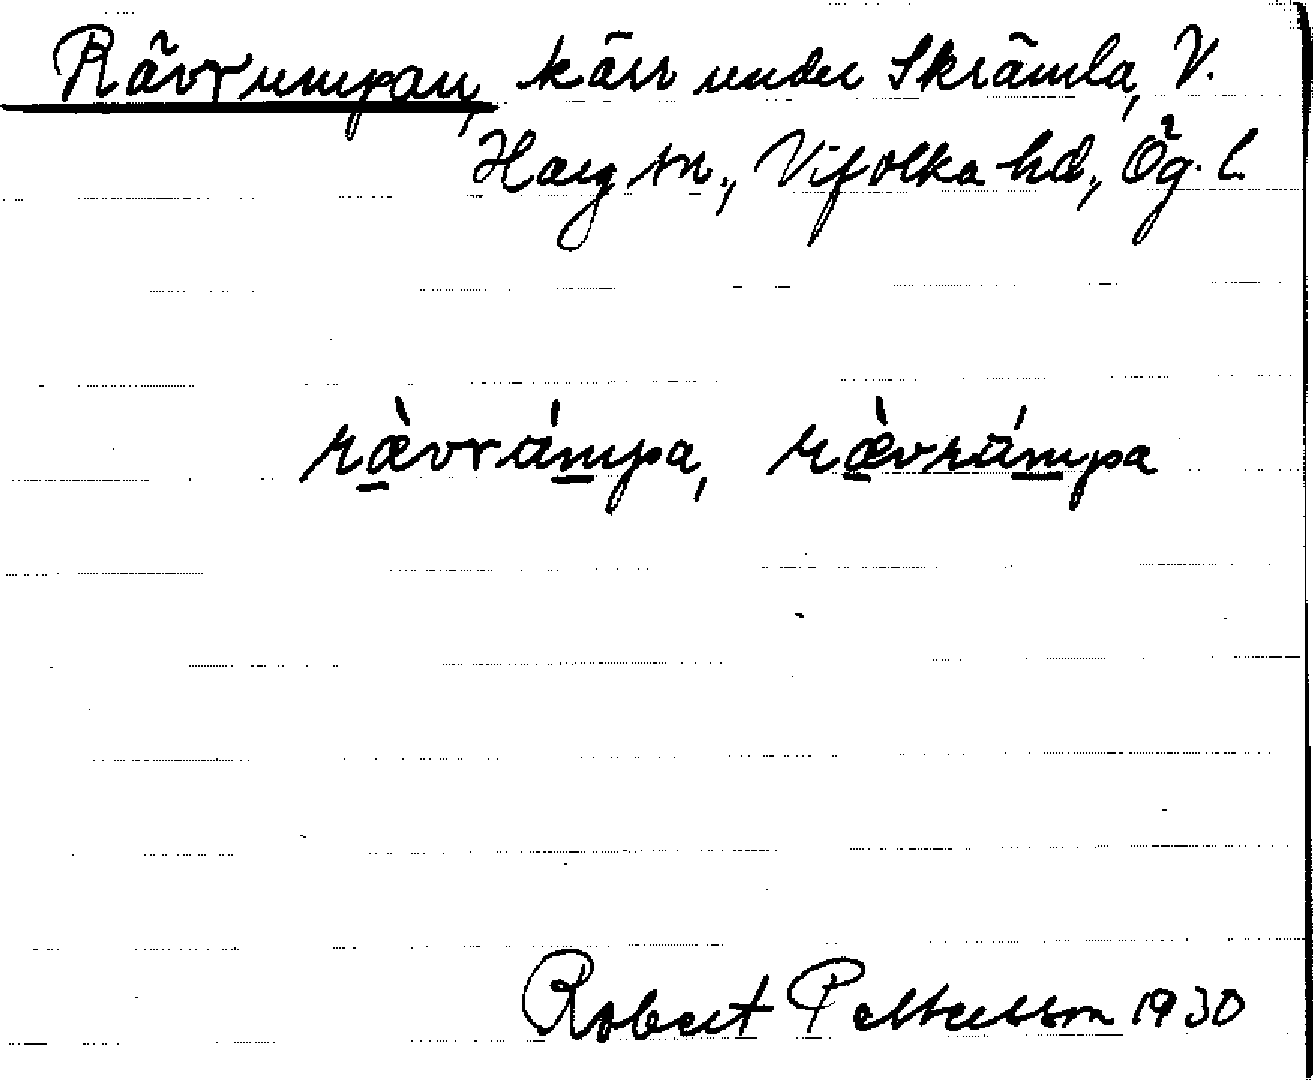 Rävrumpan, kärr under Skrämla, V.
Harg sn., Vifolka hd., Ög. l.
ræ̀vrúmpa, ræ̀vrúmpa
Robert Pettersson 1930